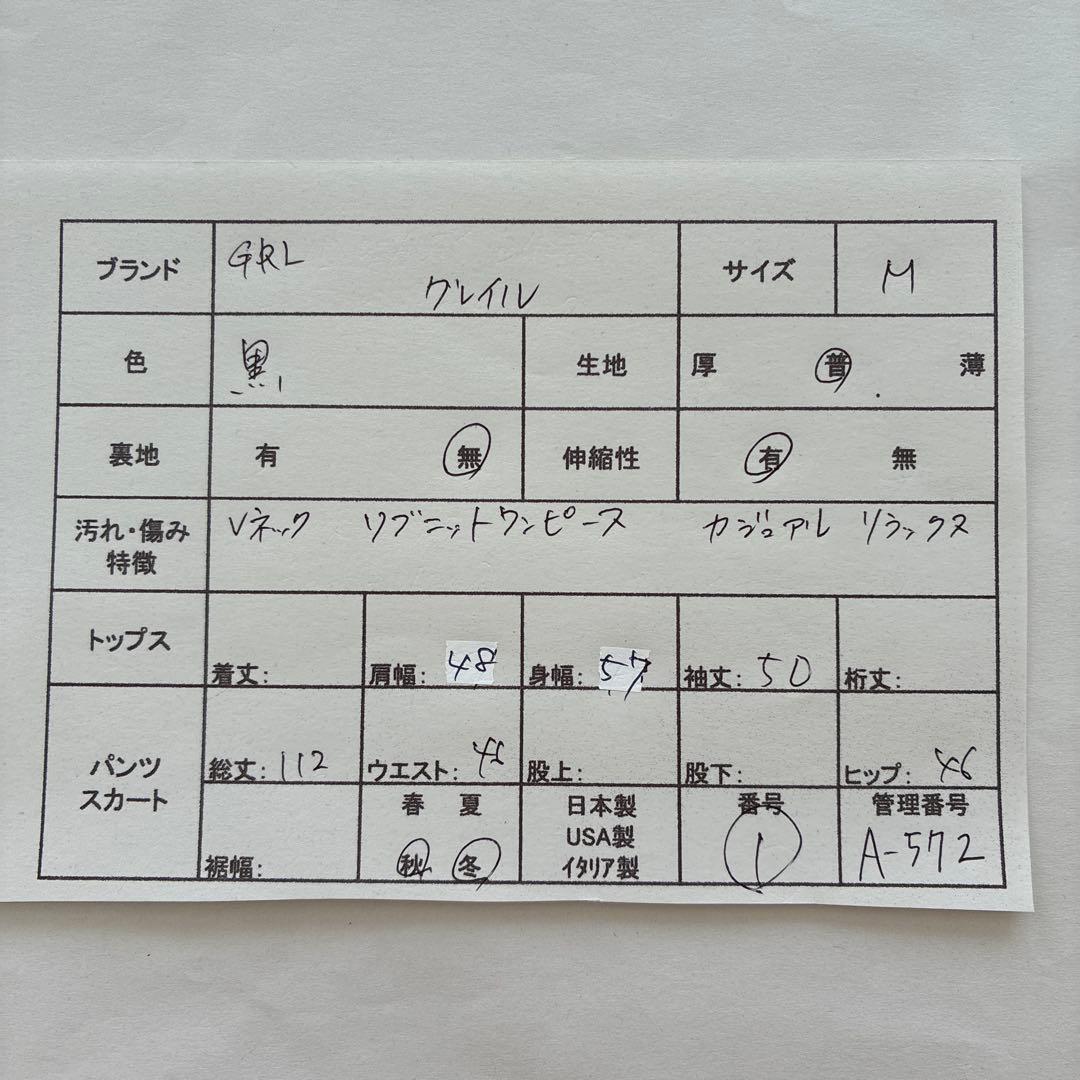 ブランド GRL グレイル サイズ M
色 黒 生地 厚 普 薄
裏地 有 無 伸縮性 有 無
汚れ・傷み Vネック リブニットワンピース カジュアル リラックス
特徴
トップス 着丈: 肩幅: 48 身幅: 57 袖丈: 50 桁丈:
パンツ
スカート
総丈: 112 ウエスト: 股上: 股下: ヒップ: 46
裾幅: 春 夏 秋 冬
日本製
USA製
イタリア製
番号 1
管理番号
A-572